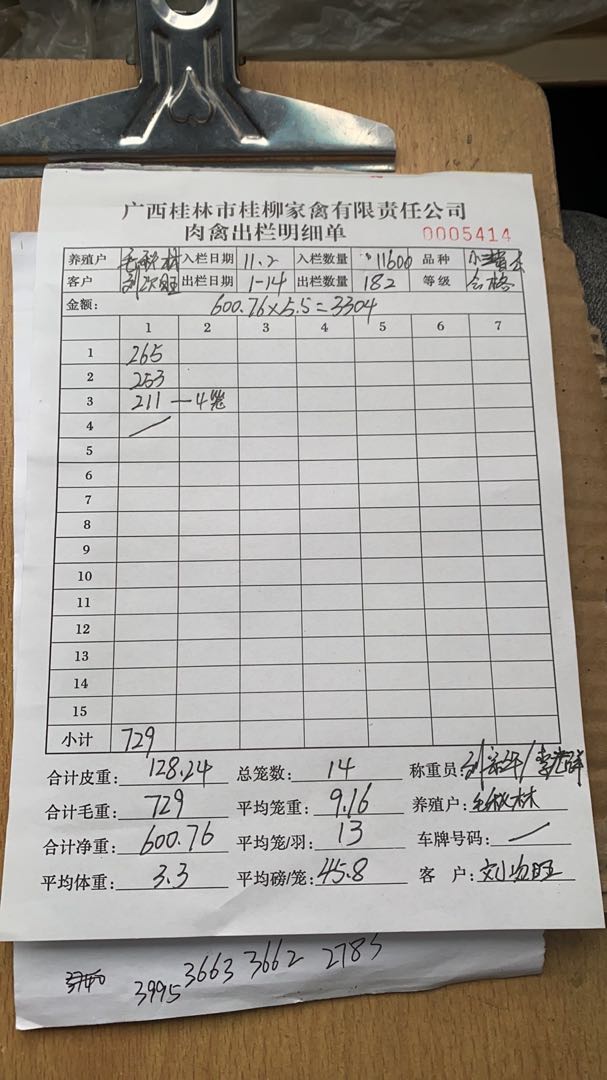 广西桂林市桂柳家禽有限责任公司
肉禽出栏明细单 0005414
养殖户 毛秋林 入栏日期 11.2 入栏数量 11600 品种
客户 出栏日期 1-14 出栏数量 182 等级 合格
金额: 600.76×5.5=3304
1 2 3 4 5 6 7
1 265
2 253
3 211 — 4笼
4 /
5
6
7
8
9
10
11
12
13
14
15
小计 729
合计皮重: 128.24 总笼数: 14 称重员:
合计毛重: 729 平均笼重: 9.16 养殖户: 毛秋林
合计净重: 600.76 平均笼/羽: 13 车牌号码: /
平均体重: 3.3 平均磅/笼: 45.8 客 户:
3995 3663 3662 2785